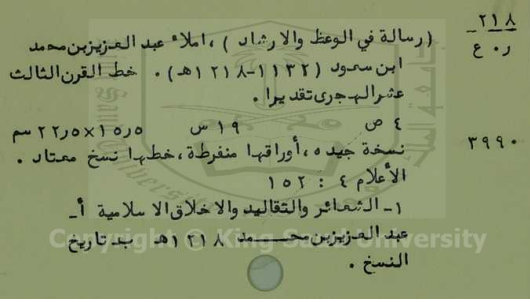 ٢١٨
ر ٠ ع
( رسالة في الوعظ والارشاد ) ، املاء عبد العزيز بن محمد
ابن سعود ( ١١٣٢-١٢١٨هـ ) ٠ خط القرن الثالث
عشر الهجرى تقديرا ٠
٤ ص ١٩ س ٥ر١٥×٥ر٢٢ سم
٣٩٩٠
نسخة جيده ، أوراقها منفرطة ، خطها نسخ معتاد ٠
الأعلام ٤ : ١٥٢
١- الشعائر والتقاليد والاخلاق الاسلامية أ-
عبد العزيز بن محمد ١٢١٨هـ ب- تاريخ
النسخ ٠
Copyright © King Saud University